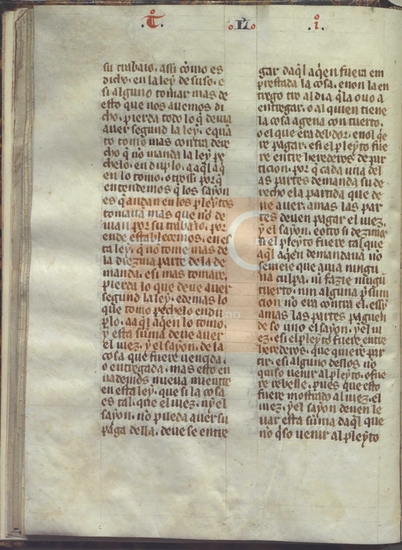 T. .L. .i.
su trabaio. assi como es
dicho en la ley de suso. e
si alguno tomar mas de
esto que nos auemos di
cho. pierda todo lo q̄ deuia
auer segund la ley. e quā
to tomo mas contra dere
cho q̄ no manda la ley pe
chelo en duplo. a aq̄l a q̄
en lo tomo. otrosi por q̄
entendemos q̄ los sayon
es q̄ andan en los pleytos
tomauā mas que nō de
uian por su trabaio. por
ende establecemos. en e
la ley. q̄ no tome mas de
la diezma parte de la de
manda. e si mas tomare.
pierda lo que deue auer
segund la ley. e demas lo
que tomo pechelo en du
plo. a aq̄l a q̄en lo tomo.
y esta suma deue auer
el iuez. y el sayon. de la
cosa que fuere uencida.
o entregada. mas esto en
nademos nueua miente
en esta ley. que si la cosa
es tal. que el iuez. ny el
sayon. nō pueda auer su
paga della. deue se entre
gar daq̄l a q̄en fuera em
prestada la cosa. e non la en
trego tro al dia q̄ la ouo a
entregar. o al quien tiene
la cosa agena con tuerto.
o el que era debdor. e nol q̄e
re pagar. e si el pleyto fue
re entre herederos de par
ticion. por q̄ cada una del
as partes demanda su de
recho e la partida que de
ue auer. amas las par
tes deuen pagar el iuez.
y el sayon. e otto si dezimos
si el pleyto fuere tal que
aq̄l a q̄en demandauā no
semeie que auia ningu
na culpa. ni fazie ningū
tuerto. nin alguna p̄sum
cion no era contra el. essy
amas las partes paguen
de so uno el sayon. y el iu
ez. e si el pleyto fuere entre
herederos. que quiere par
tir. e si alguno dellos. no
quiso uenir al pleyto. o fue
re rebelle. pues que esto
fuere mostrado al iuez. el
iuez. y el sayon deuen le
uar esta suma daq̄l que
nō q̄so uenir al pleyto